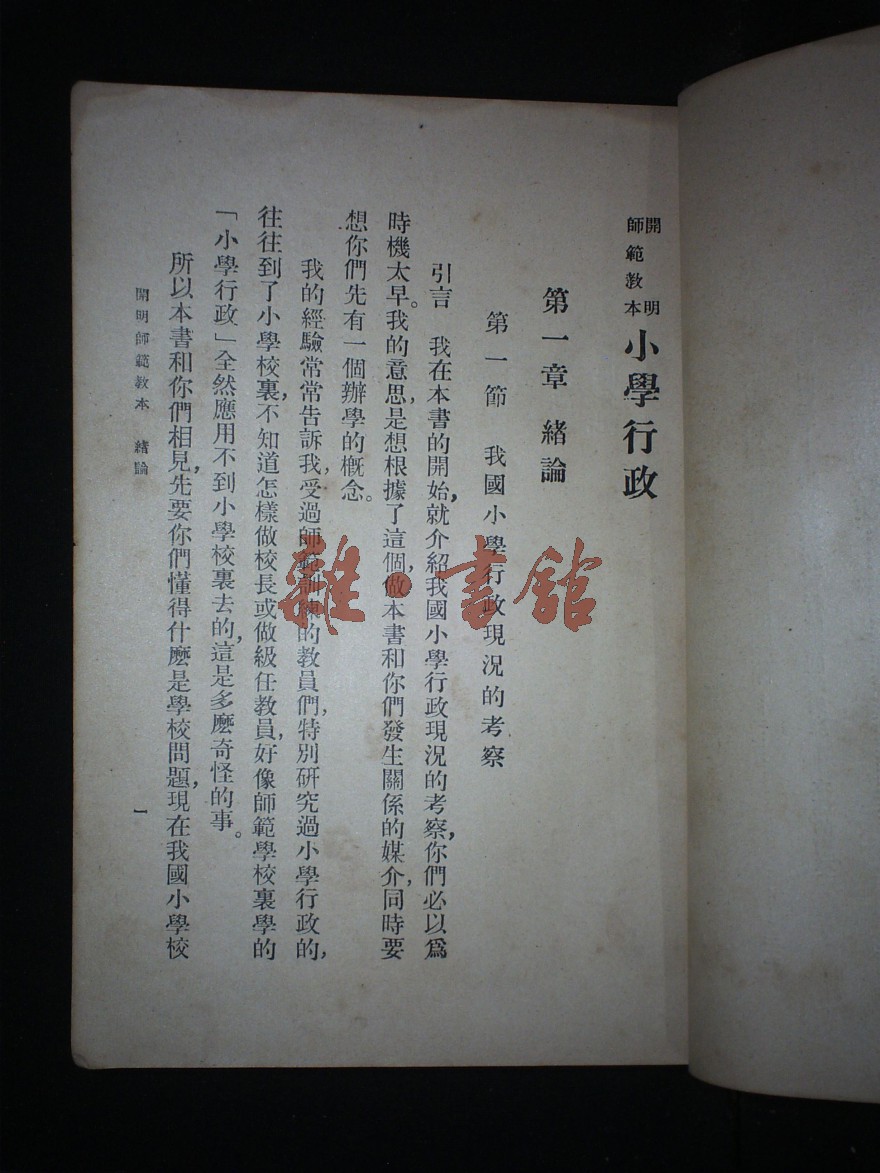 開明
師範教本
小學行政
第一章 緒論
第一節 我國小學行政現況的考察
引言 我在本書的開始,就介紹我國小學行政現況的考察,你們必以爲
時機太早。我的意思,是想根據了這個,做本書和你們發生關係的媒介,同時要
想你們先有一個辦學的概念。
我的經驗常常告訴我,受過師範訓練的教員們,特別研究過小學行政的,
往往到了小學校裏,不知道怎樣做校長或做級任教員,好像師範學校裏學的
「小學行政」全然應用不到小學校裏去的,這是多麽奇怪的事。
所以本書和你們相見,先要你們懂得什麽是學校問題,現在我國小學校
開明師範教本 緒論
一
雜·書館